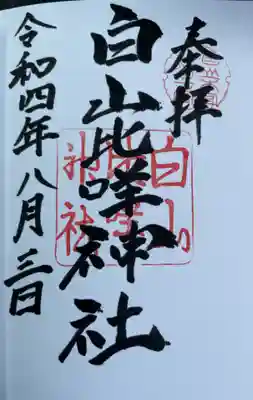 奉拝
白山比咩神社
令和四年八月三日
白山
比咩
神社